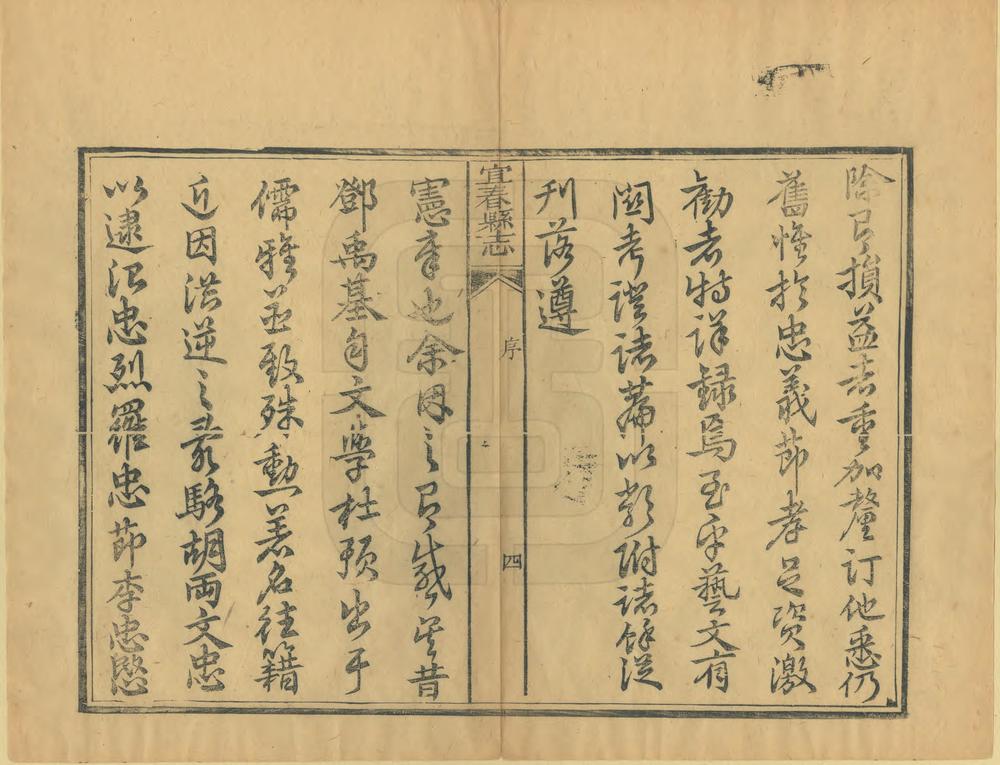 除有損益者重加釐訂他悉仍
舊惟於忠義節孝足資激
勸者特詳錄焉至乎藝文有
關考證諸篇以類附諸餘從
刊落遵
宜春縣志
序
四
憲章也余因之有感矣昔
鄧禹基自文學杜預出于
儒雅並致殊勳著名往籍
近因洪逆之亂駱胡兩文忠
以逮江忠烈羅忠節李忠愍